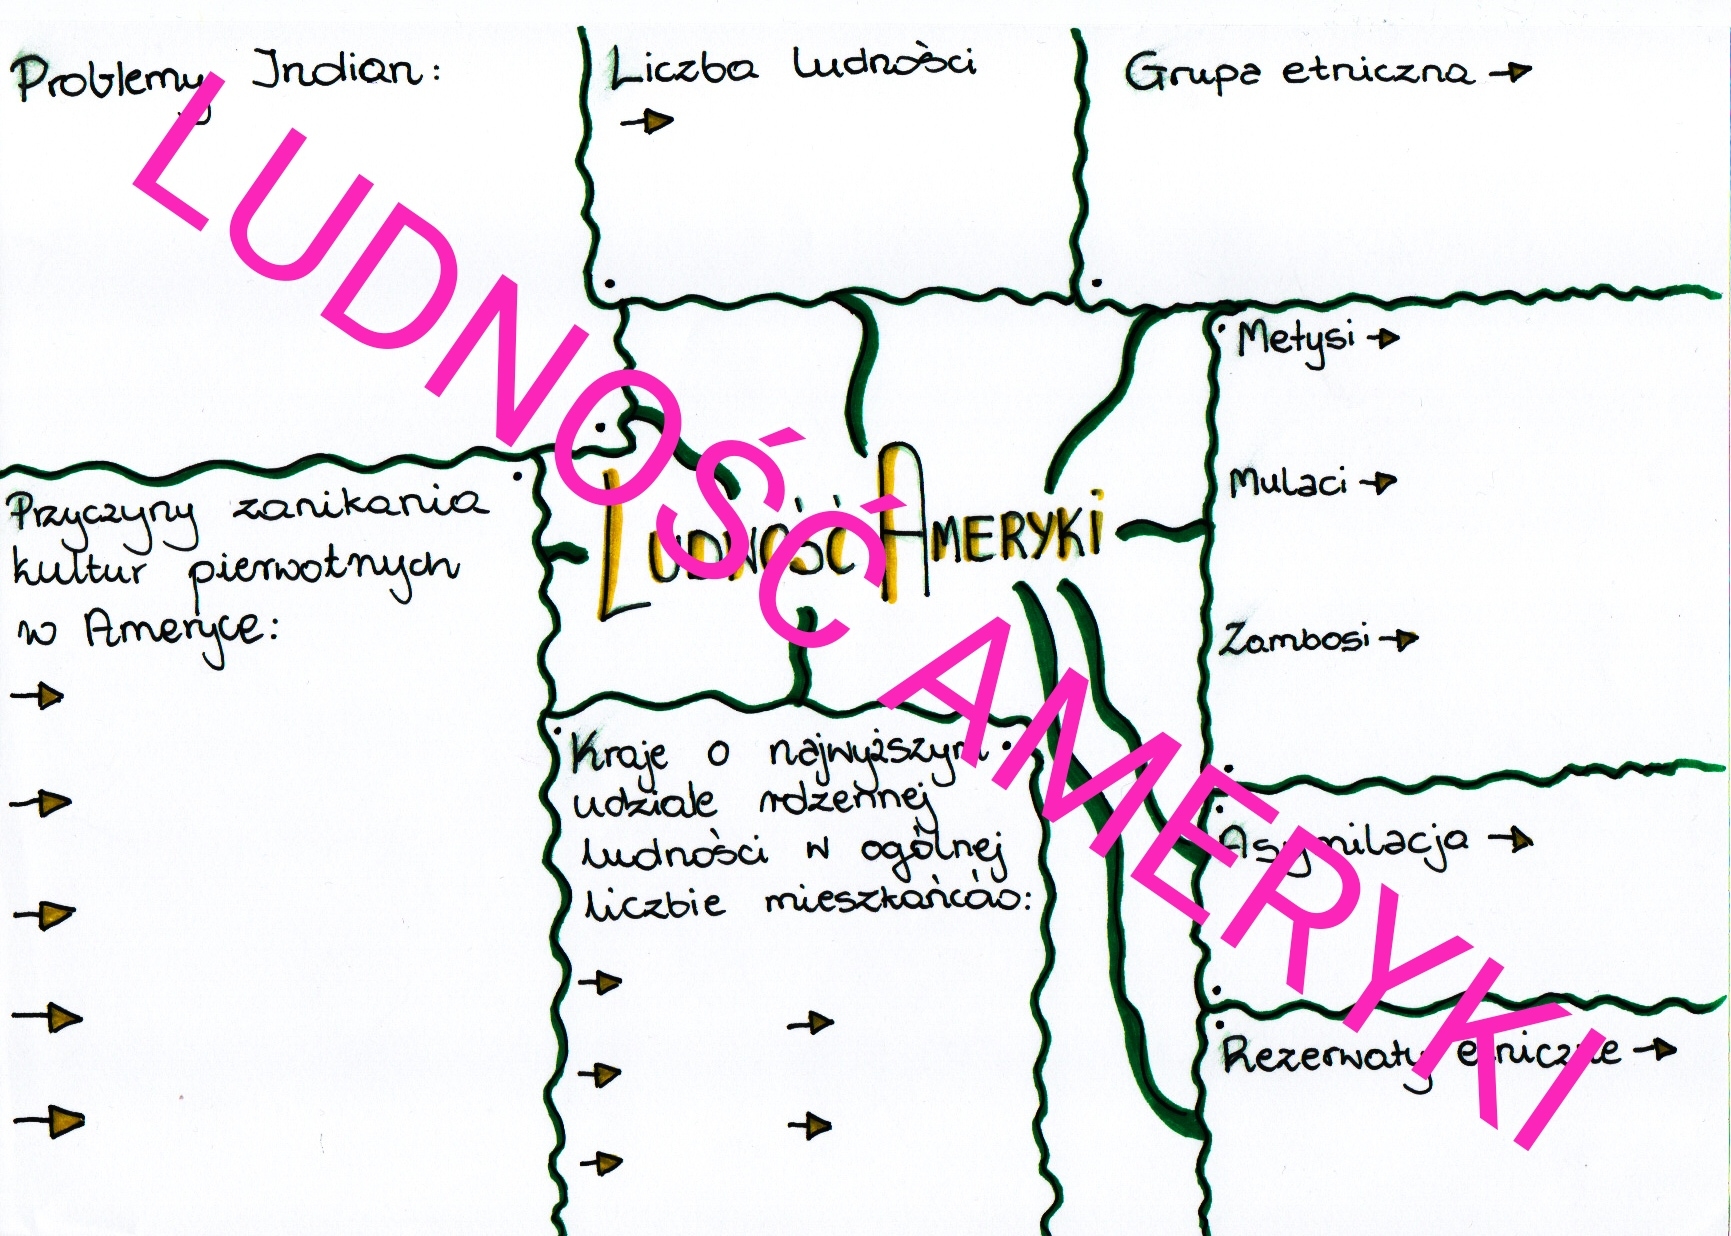 Problemy Indian:
Liczba ludności
Grupa etniczna →
Metysi →
Mulaci →
Zambosi →
LUDNOŚĆ AMERYKI
Przyczyny zanikania
kultur pierwotnych
w Ameryce:
LUDNOŚĆ AMERYKI
Kraje o najwyższym
udziale rdzennej
ludności w ogólnej
liczbie mieszkańców:
Asymilacja →
Rezerwaty etniczne →